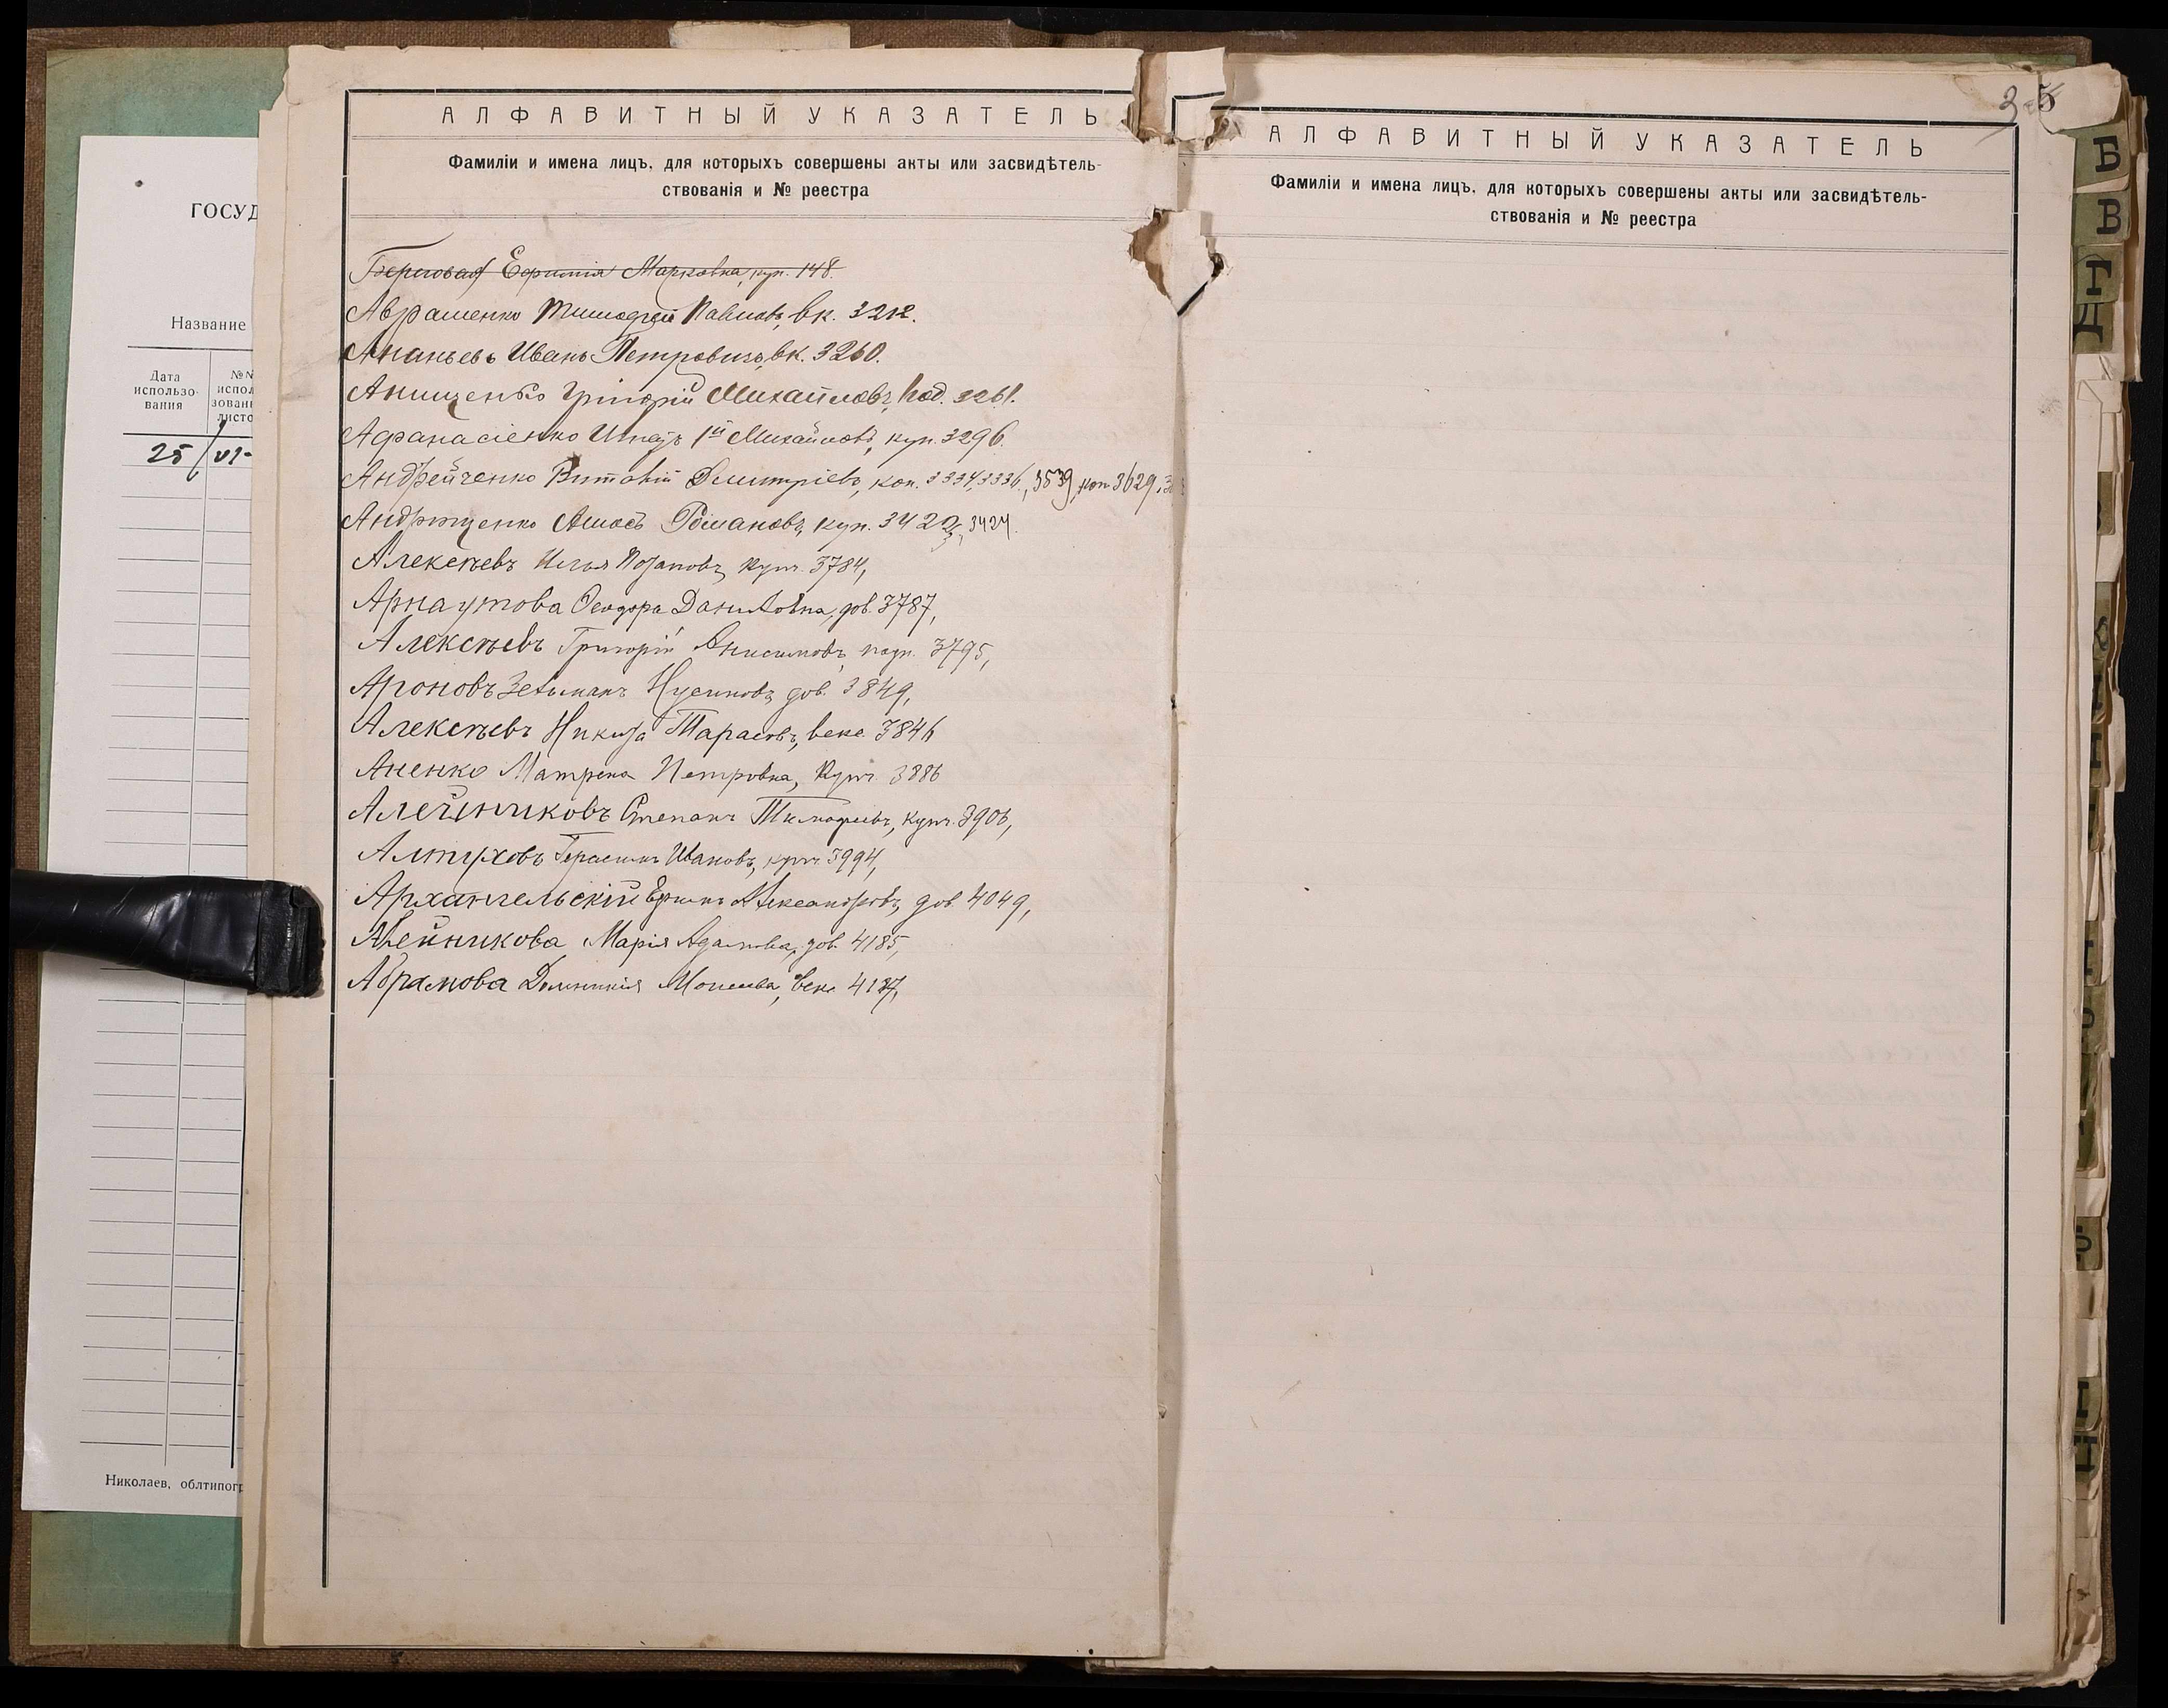 ГОСУД
Название
Дата
использо-
вания
№№
испол
зовани
листо
25/VI-
Николаев, облтипогр
АЛФАВИТНЫЙ УКАЗАТЕЛЬ
Фамиліи и имена лицъ, для которыхъ совершены акты или засвидѣтель-
ствованія и № реестра
Береговая Ефимія Марковна, куп. 148.
Авраменко Тимофей Павловъ, вк. 3212.
Ананьевъ Иванъ Петровичъ, вк. 3260.
Анищенко Григорій Михайловъ, 3261.
Афанасіенко Игнатъ 1й Михайловъ, куп. 3296.
Андрейченко Димитріевъ, коп. 3334, 3336, 3539, коп 3629,
Андрющенко Амосъ Романовъ, куп. 3423, 3424.
Алексѣевъ Илья Потаповъ, купч. 3784,
Арнаутова Ѳеодора Даниловна, дов. 3787,
Алексѣевъ Григорій Анисимовъ, подп. 3795,
Ароновъ Зельманъ Нусимовъ, дов. 3849,
Алексѣевъ Никита Тарасовъ, векс. 3846
Аненко Матрена Петровна, Купч. 3886
Алейниковъ Степанъ Тимофеевъ, купч. 3906,
Алтуховъ Герасимъ Ивановъ, купч. 3994,
Архангельскій Ефимъ Александровъ, дов. 4049,
Алейникова Марія Адамова, дов. 4185,
Абрамова Домникія Моисеева, векс. 4187,
3 5
АЛФАВИТНЫЙ УКАЗАТЕЛЬ
Фамиліи и имена лицъ, для которыхъ совершены акты или засвидѣтель-
ствованія и № реестра
Б
В
Г
Д